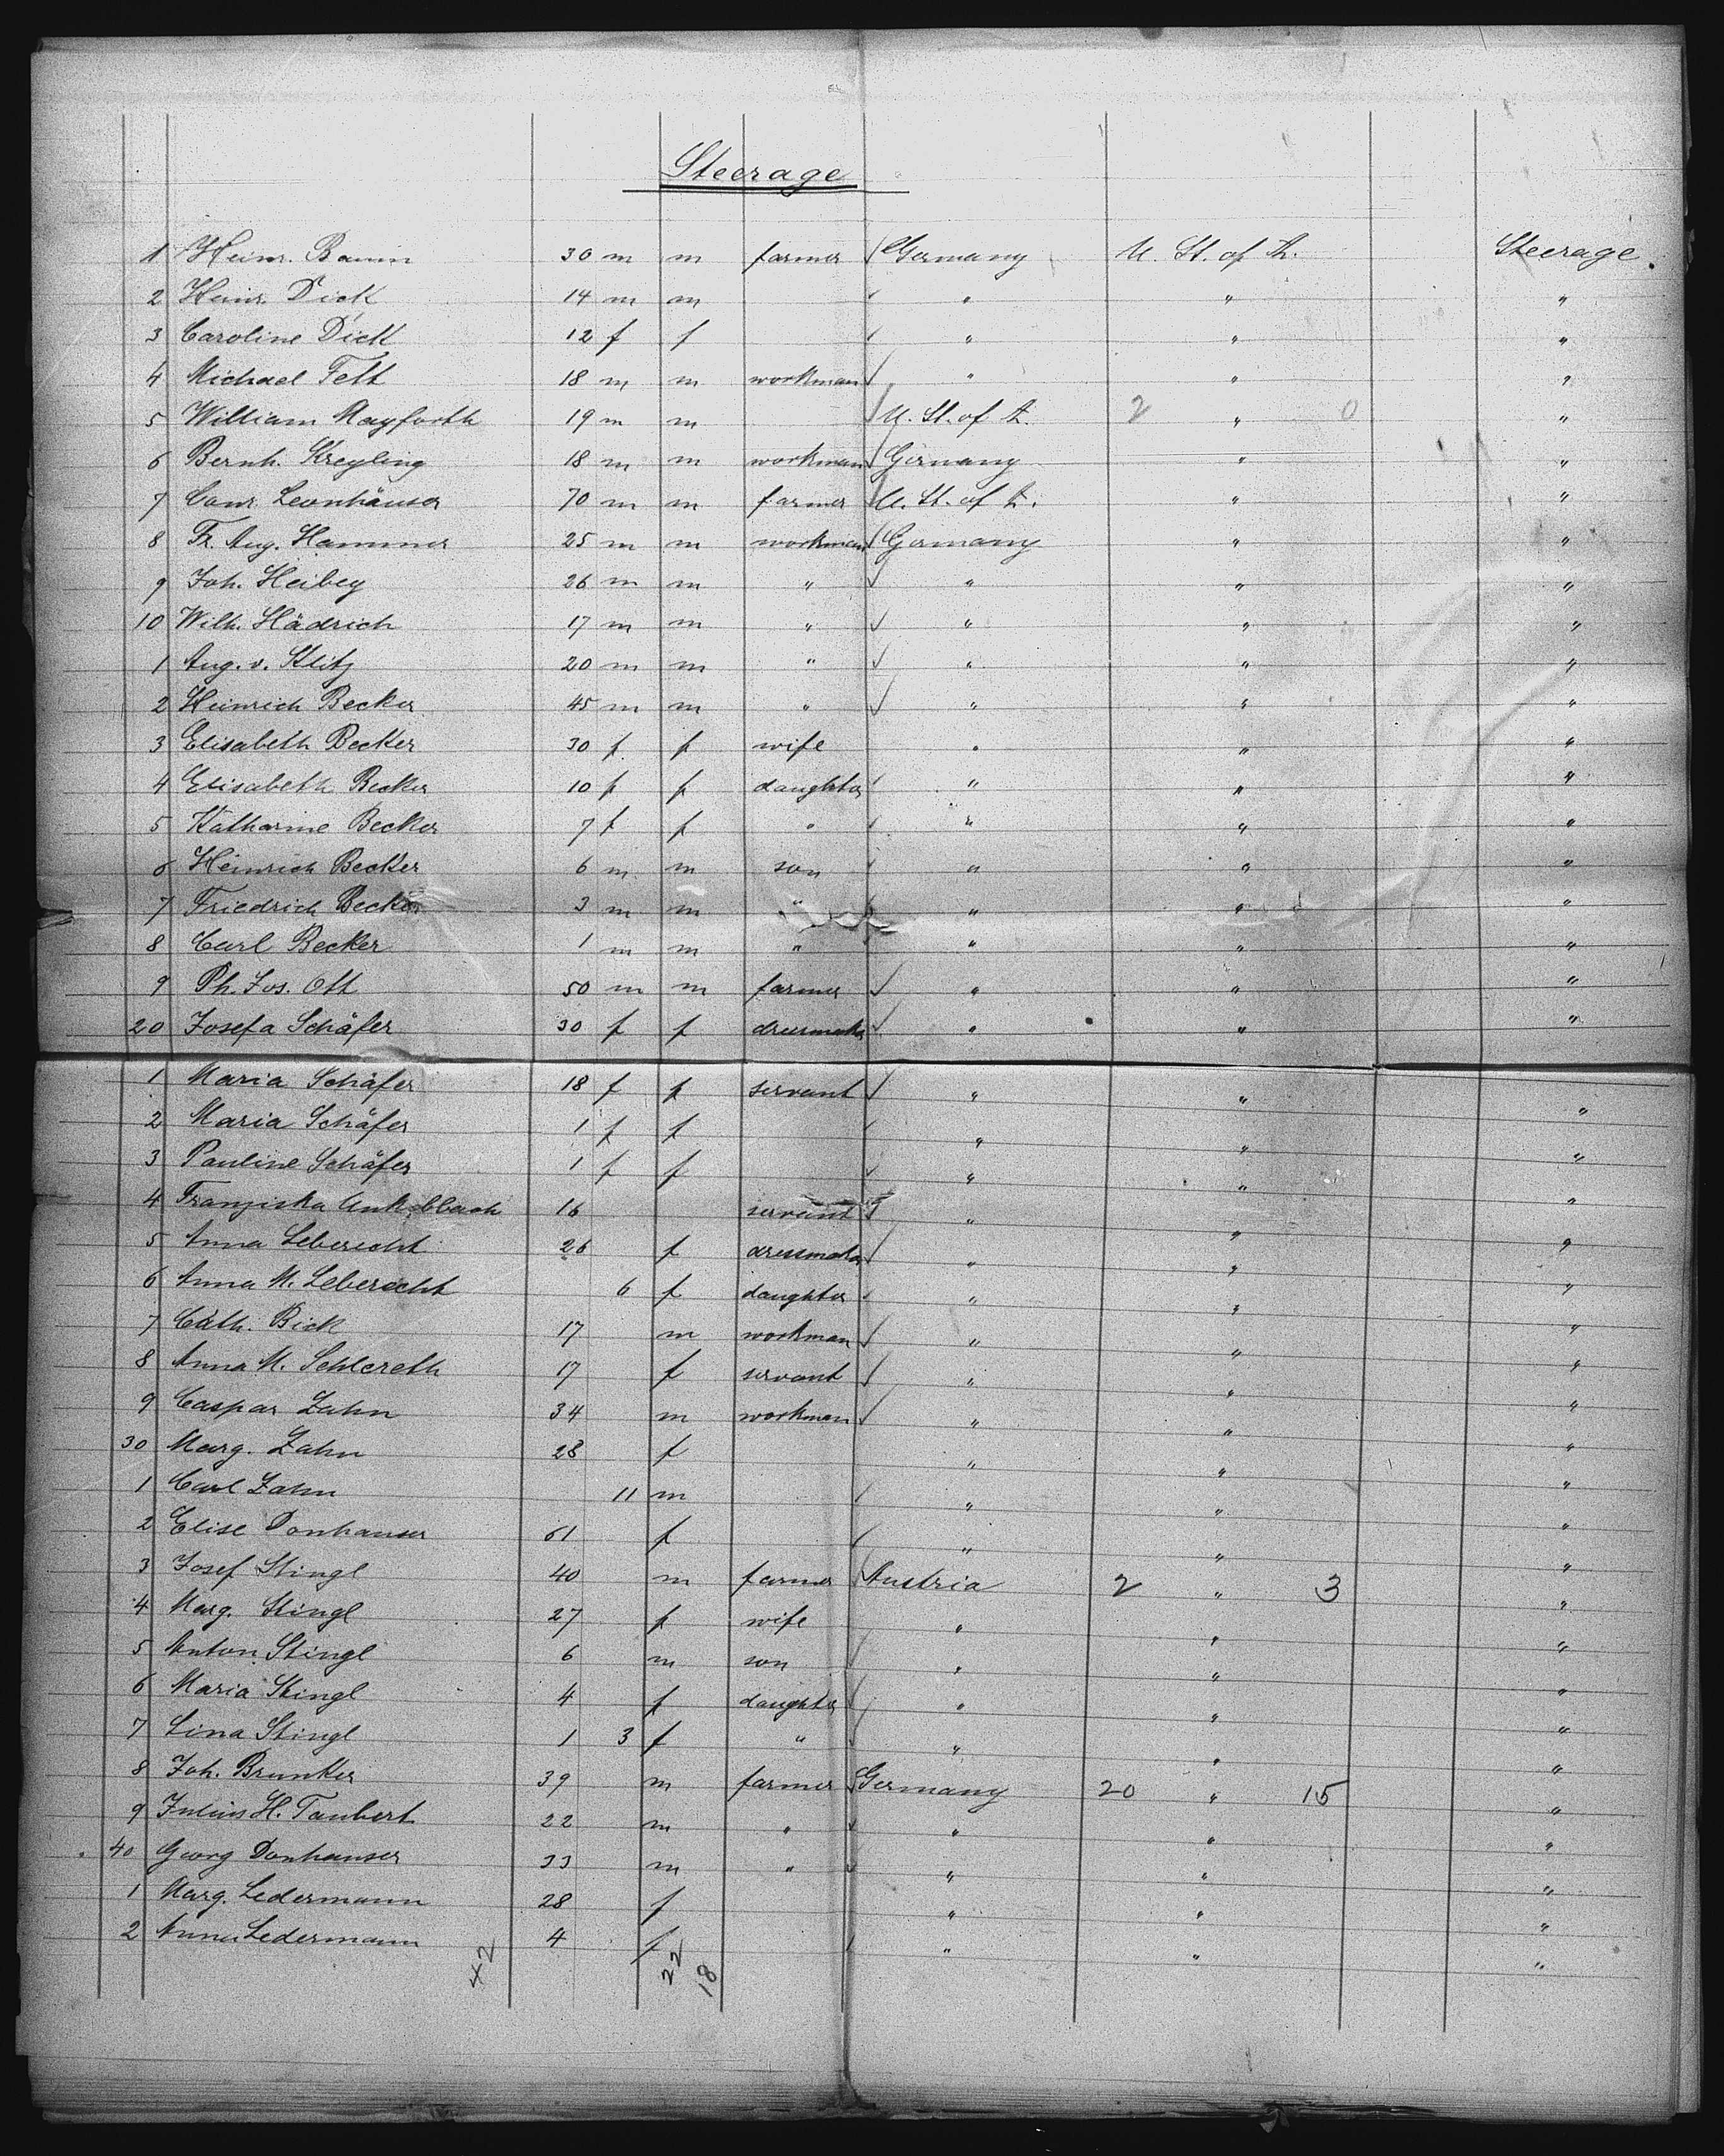 Steerage
1 Heinr. Baum 30 m m farmer Germany U. St. of A. Steerage.
2 Heinr. Dick 14 m m " " "
3 Caroline Dick 12 f f " " "
4 Michael Fett 18 m m workman " " "
5 William Mayforth 19 m m U. St. of A. 2 " 0 "
6 Bernh. Kreyling 18 m m workman Germany " "
7 Conr. Leonhäuser 70 m m farmer U. St. of A. " "
8 Fr. Aug. Hammer 25 m m workman Germany " "
9 Joh. Heibey 26 m m " " " "
10 Wilh. Hädrich 17 m m " " " "
1 Aug. v. Klitz 20 m m " " " "
2 Heinrich Becker 45 m m " " " "
3 Elisabeth Becker 30 f. f wife " " "
4 Elisabeth Becker 10 f f daughter " " "
5 Katharine Becker 7 f f " " " "
6 Heinrich Becker 6 m m son " " "
7 Friedrich Becker 3 m m " " " "
8 Carl Becker 1 m m " " " "
9 Ph. Jos. Ott 50 m m farmer " " "
20 Josefa Schäfer 30 f f dressmaker " " "
1 Maria Schäfer 18 f f servant " " "
2 Maria Schäfer 1 f f " " "
3 Pauline Schäfer 1 f f " " "
4 Franziska 16 servant " " "
5 Anna Leberecht 26 f dressmaker " " "
6 Anna M. Leberecht 6 f daughter " " "
7 Cath. Bick 17 m workman " " "
8 Anna M. Schlereth 17 f servant " " "
9 Caspar Zahn 34 m workman " " "
30 Marg. Zahn 28 f " " "
1 Carl Zahn 11 m " " "
2 Elise Donhauser 61 f " " "
3 Josef Stingl 40 m farmer Austria 2 " 3 "
4 Marg. Stingl 27 f wife " " "
5 Anton Stingl 6 m son " " "
6 Maria Stingl 4 f daughter " " "
7 Lina Stingl 1 3 f " " " "
8 Joh. Brunker 39 m farmer Germany 20 " 15 "
9 Julius H. Taubert 22 m " " " "
40 Georg Donhauser 33 m " " " "
1 Marg. Ledermann 28 f " " "
2 Anna Ledermann 4 f " " "
42 22 18